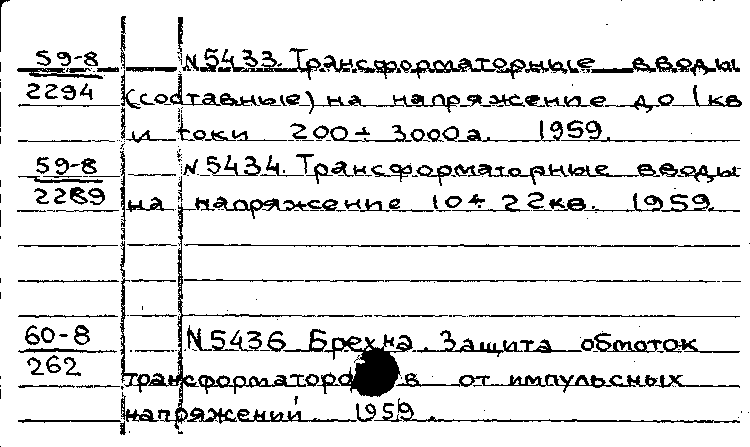 59-8 N5433. Трансформаторные вводы
2294 (составные) на напряжение до 1кв
и токи 200÷3000а. 1959.
59-8 N5434. Трансформаторные вводы
2289 на напряжение 10÷22кв. 1959
60-8 N5436 Брехна. Защита обмоток
262 трансформаторов от импульсных
напряжений 1959.